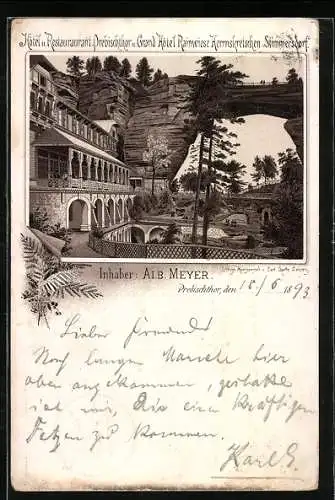 Hôtel u. Restaurant Prebischthor u. Grand Hôtel Rainwiese Herrnskretschen-Stimmersdorf
Inhaber: ALB. MEYER.
Prebischthor, den 18/6 1893
Lieber Freund!
Nach langen Marsche hier
oben angekommen, gestatte
ich mir, Dir einen kräftigen
Fetzen zu
Karl G.